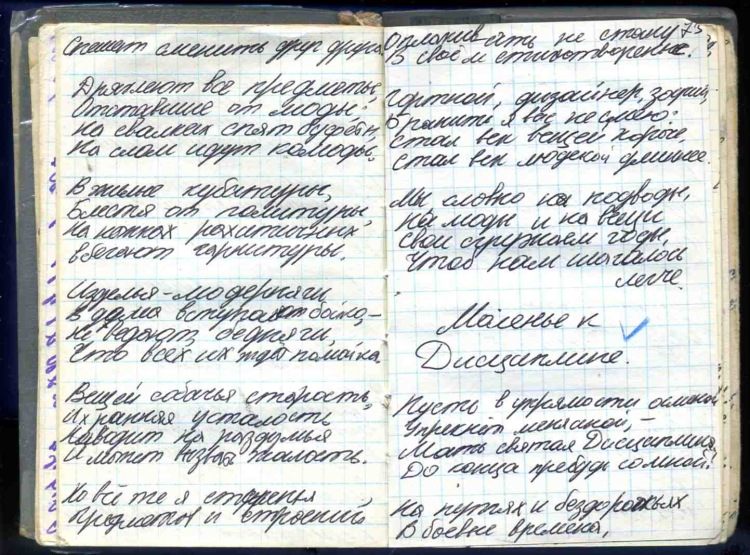 Спешат сменить друг друга
Дряхлеют все предметы,
Отставшие от моды:
На свалках спят буфеты,
На слом идут комоды.
В жильё кубатуры,
Блестя от политуры,
На ножках рахитичных
вбегают гарнитуры.
Изделья-модерняги
В дома вступают бойко, —
Не ведают, бедняги,
Что всех их ждёт помойка
Вещей собачья старость,
Их ранняя усталость
Наводит на раздумья
И может вызвать жалость.
Но всё же я старенья
Предметов и строений
75
Оплакивать не стану
В своём стихотвореньи.
Портной, дизайнер, зодчий,
Бранить я вас не смею:
Стал век вещей короче,
Стал век людской длиннее.
Мы словно на подводы,
На моды и на вещи
Свои сгружаем годы,
Чтоб нам шагалось
легче.
Моленье к
Дисциплине.
Пусть в упрямости ослиной
Упрекнёт меня иной, —
Мать святая Дисциплина,
До конца пребудь со мной!
На путях и бездорожьях
В боевые времена,